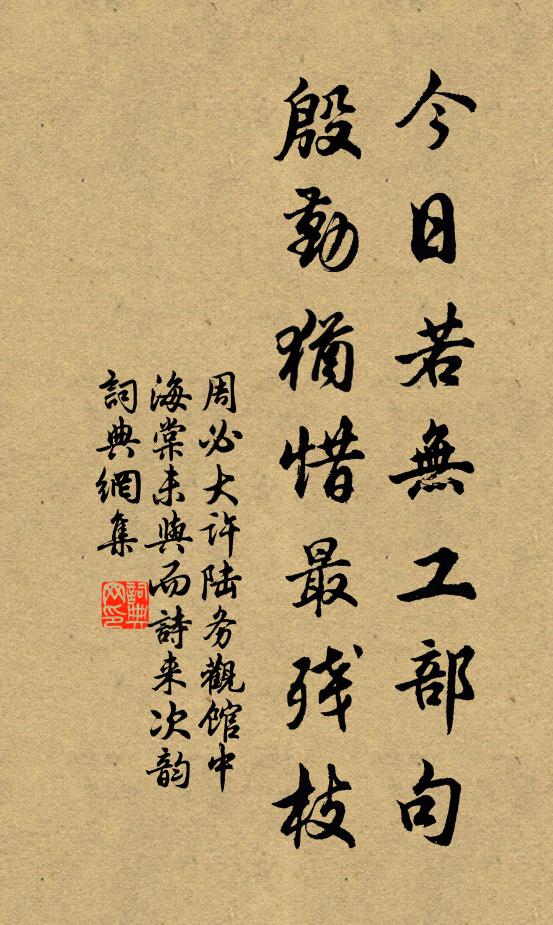 今日若無工部句
殷勤猶惜最残枝
周必大许陆务觀馆中
海棠未與而詩来次韵
詞典網集
詞典
网印